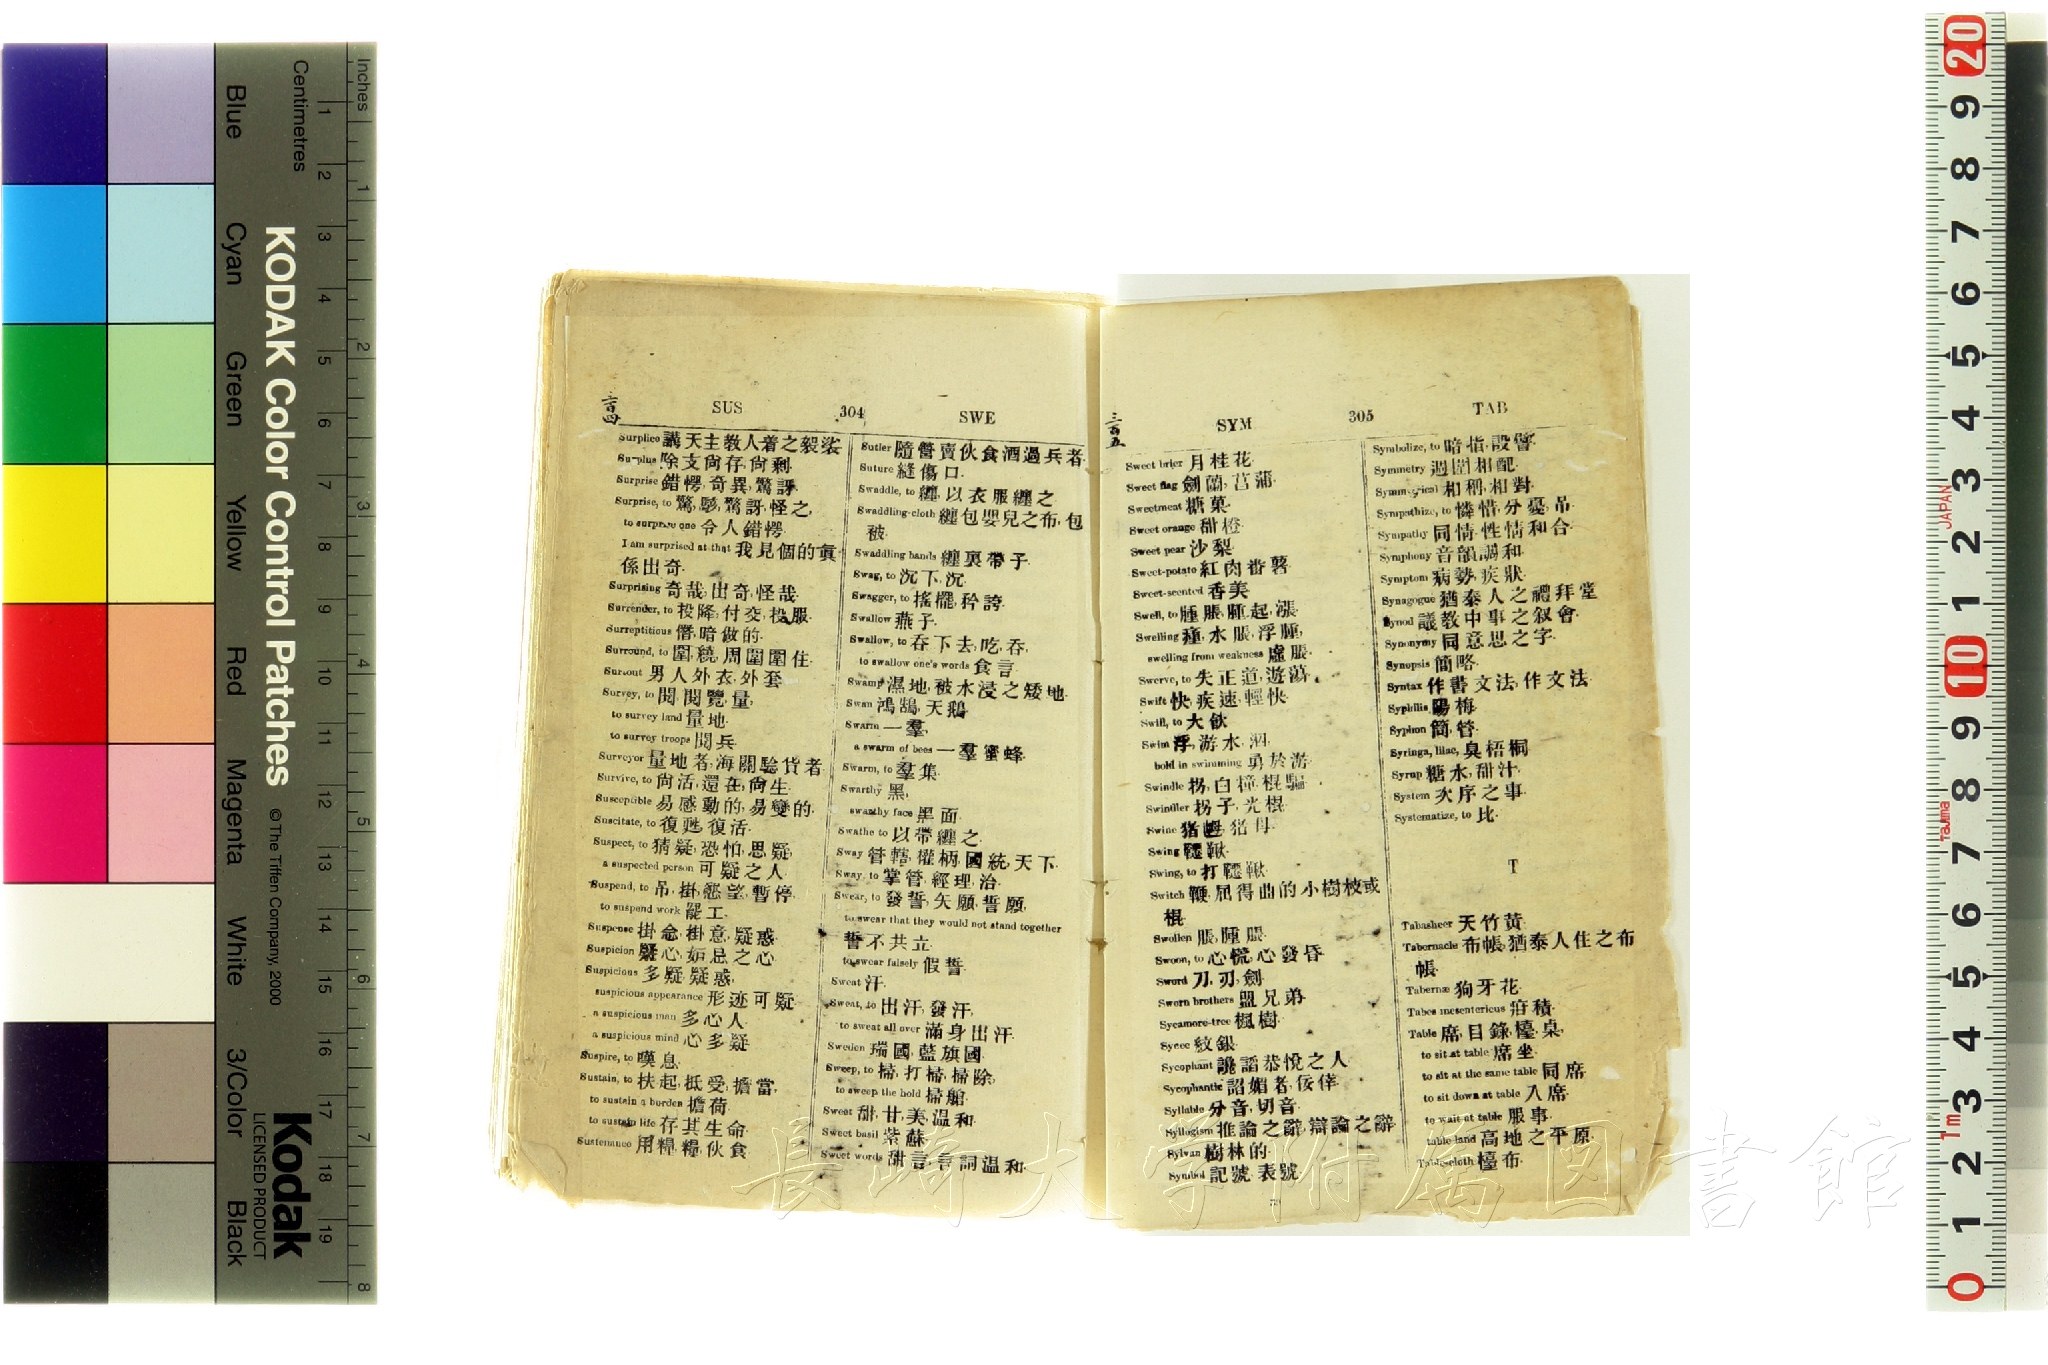 Blue
Cyan
Green
Yellow
Red
Magenta
White
3/Color
Black
Centimetres
Inches
KODAK Color Control Patches
© The Tiffen Company, 2000
Kodak
LICENSED PRODUCT
三百四
SUS 304 SWE
Surplice 天主教人着之袈裟
Surplus 除支尙存,尙剩
Surprise 錯愕,奇異,驚訝
Surprise, to 驚,驚訝,怪之,
to surprise one 令人錯愕
I am surprised at that 我見個的眞
係出奇
Surprising 奇哉,出奇,怪哉
Surrender, to 投降,付交,投服
Surreptitious 僭,暗做的
Surround, to 圍,繞,周圍圍住
Surtout 男人外衣,外套
Survey, to 閱,閱覽,量,
to survey land 量地
to survey troops 閱兵
Surveyor 量地者,海關驗貨者
Survive, to 尙活,還在,尙生
Susceptible 易感動的,易變的
Suscitate, to 復甦,復活
Suspect, to 猜疑,恐怕,思疑,
a suspected person 可疑之人
Suspend, to 吊,掛,慾望,暫停
to suspend work 罷工
Suspense 掛念,掛意,疑惑
Suspicion 疑心,妬忌之心
Suspicious 多疑,疑惑,
suspicious appearance 形迹可疑
a suspicious man 多心人
a suspicious mind 心多疑
Suspire, to 嘆息
Sustain, to 扶起,抵受,擔當,
to sustain a burden 擔荷
to sustain life 存其生命
Sustenance 用糧,糧,伙食
Sutler 隨營賣伙食酒過兵者
Suture 縫傷口
Swaddle, to 纏,以衣服纏之
Swaddling-cloth 纏包嬰兒之布,包
被
Swaddling bands 纏裹帶子
Swag, to 沉下,沉
Swagger, to 搖擺,矜誇
Swallow 燕子
Swallow, to 吞下去,吃,吞,
to swallow one's words 食言
Swamp 濕地,被水浸之矮地
Swan 鴻鵠,天鵝
Swarm 一羣,
a swarm of bees 一羣蜜蜂
Swarm, to 羣集
Swarthy 黑,
swarthy face 黑面
Swathe to 以帶纏之
Sway 管轄,權柄,國統,天下
Sway, to 掌管,經理,治
Swear, to 發誓,矢願,誓願,
to swear that they would not stand together
誓不共立
to swear falsely 假誓
Sweat 汗
Sweat, to 出汗,發汗,
to sweat all over 滿身出汗
Sweden 瑞國,藍旗國
Sweep, to 掃,打掃,掃除,
to sweep the hold 掃艙
Sweet 甜,甘美,温和
Sweet basil 紫蘇
Sweet words 甜言,言詞温和
三百五
SYM 305 TAB
Sweet brier 月桂花
Sweet flag 劍蘭,菖蒲
Sweetmeat 糖菓
Sweet orange 甜橙
Sweet pear 沙梨
Sweet-potato 紅肉畨薯
Sweet-scented 香美
Swell, to 腫脹,腫起,漲
Swelling 瘇,水脹,浮腫,
swelling from weakness 虛脹
Swerve, to 失正道,遊蕩
Swift 快,疾速,輕快
Swill, to 大飲
Swim 浮,游水,泅
bold in swimming 勇於游
Swindle 拐,白撞,棍騙
Swindler 拐子,光棍
Swine 猪乸,猪母
Swing 韆鞦
Swing, to 打韆鞦
Switch 鞭,屈得曲的小樹枝或
棍
Swollen 脹,腫脹
Swoon, to 心慌,心發昏
Sword 刀,刃,劍
Sworn brothers 盟兄弟
Sycamore-tree 楓樹
Sycee 紋銀
Sycophant 諂恭悅之人
Sycophantic 諂媚者,佞倖
Syllable 分音,切音
Syllogism 推論之辭,辯論之辭
Sylvan 樹林的
Symbol 記號,表號
Symbolize, to 暗指,設譬
Symmetry 週圍相配
Symmetrical 相稱,相對
Sympathize, to 憐惜,分憂,吊
Sympathy 同情,性情和合
Symphony 音韻調和
Symptom 病勢,疾狀
Synagogue 猶泰人之禮拜堂
Synod 議教中事之叙會
Synonymy 同意思之字
Synopsis 簡略
Syntax 作書文法,作文法
Syphilis 陽梅
Syphon 筒
Syringa, lilac, 臭梧桐
Syrup 糖水,甜汁
System 次序之事
Systematize, to 比
T
Tabasheer 天竹黃
Tabernacle 布帳,猶泰人住之布
帳
Tabernæ 狗牙花
Tabes mesentericus 疳積
Table 席,目錄,檯,桌,
to sit at table 席坐
to sit at the same table 同席
to sit down at table 入席
to wait at table 服事
table land 高地之平原
Table-cloth 檯布
長崎大学附属図書館
JAPAN
Tajima
1m